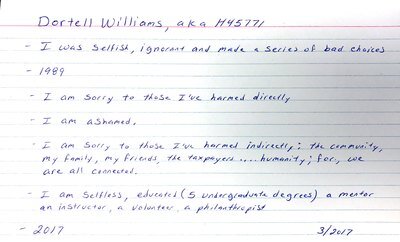 Dortell Williams, aka H45771
- I was selfish, ignorant and made a series of bad choices
- 1989
- I am sorry to those I've harmed directly
- I am ashamed.
- I am sorry to those I've harmed indirectly; the community,
my family, my friends, the taxpayers .... humanity; for, we
are all connected.
- I am selfless, educated (5 undergraduate degrees) a mentor
an instructor, a volunteer, a philanthropist
- 2017 3/2017